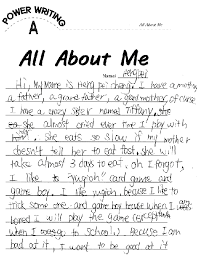 POWER WRITING
A
All About Me
All About Me
Name:
Hi, my name is Heng pei chang. I have a mother,
a father, a grand father, a grand mother, of curse
I have a crazy sister named Tiffany, she
she almost cried ever time I play with
her, she eats so slow if my mother
doesn't tell her to eat fast, she will
take almost 3 days to eat, oh I forgot,
I like to "yugioh" card game and
game boy. I like yugioh, because I like to
trick some one, and game boy because when I am
bored I will play the game
when I go to school, because I am
bad at it, I want to be good at it